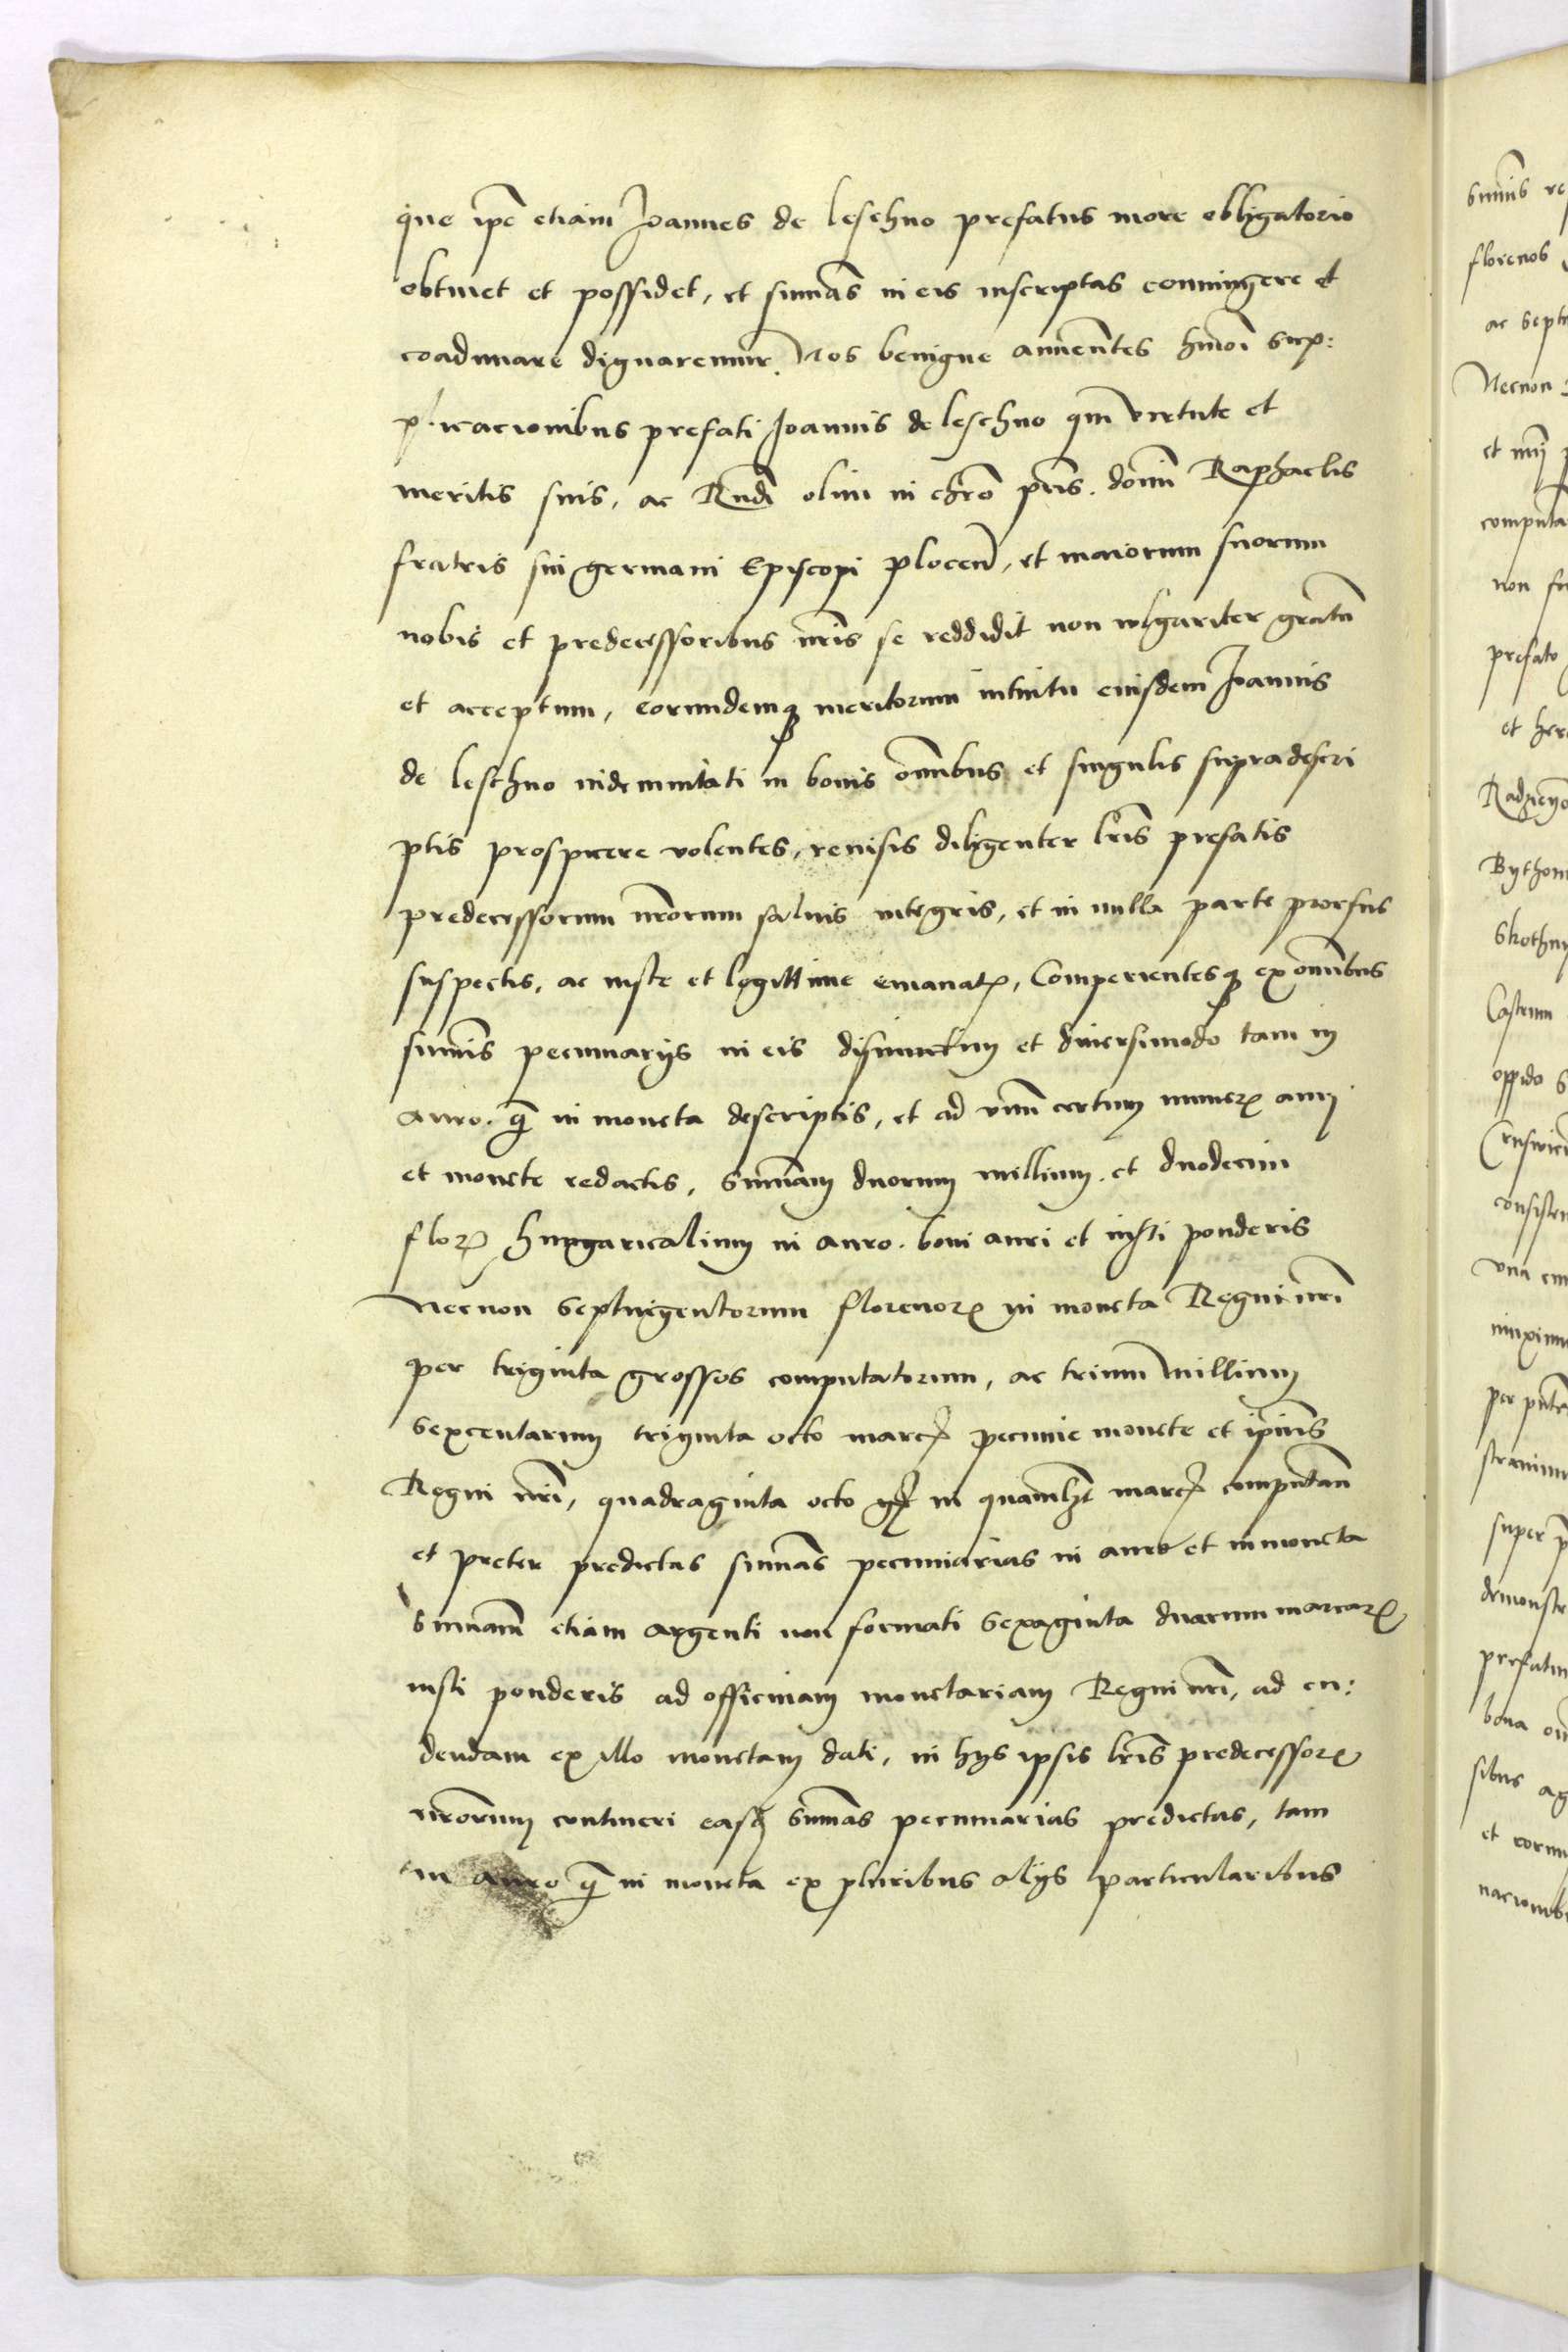 que ip̄e etiam Joannes de leschno prefatus more obligatorio
obtinet et possidet, et sum̄as in eis inscriptas coniungere et
coadunare dignaremur. Nos benigne annuentes hm̄oi sup:
plicacionibus prefati Joannis de leschno qm̄ virtute et
meritis suis, ac Rnd̄i olim in chr̄o pr̄is. domī Raphaelis
fratris sui germani Episcopi plocen̄, et maiorum suorum
nobis et predecessoribus nr̄is se reddidit non wlgariter gratū
et acceptum, eorundemqȝ meritorum intuitu eiusdem Joannis
de leschno indemnitati in bonis om̄ibus et singulis supradescri
ptis prospicere volentes, reuisis diligenter lr̄is prefatis
predecessorum nr̄orum saluis integris, et in nulla parte prorsus
suspectis, ac iuste et legittime emanatꝭ, Comperientesqȝ ex om̄ibus
sum̄is pecuniarijs in eis disiunctim et diuersimodo tam in
auro. q̄ in moneta descriptis, et ad vnū certum numerꝝ auri
et monete redactis, sum̄am duorum millium. et duodecim
florꝝ hungaricalium in auro. boni auri et iusti ponderis
Necnon septuigentorum florenorꝝ in moneta Regni nr̄i
per triginta grossos computatorum, ac trium millium
sexcentarum triginta octo marcꝭ pecunie monete et ip̄ius
Regni nr̄i, quadraginta octo gꝭ in quamlȝt marcꝭ computan̄
et preter predictas sum̄as pecuniarias in auro et in moneta
sum̄am etiam argenti non formati sexaginta duarum marcarꝝ
iusti ponderis ad officinam monetariam Regni nr̄i, ad cu:
dendam ex illo monetam dati, in hys ipsis lr̄is predecessorꝝ
nr̄orum contineri easqȝ sum̄as pecuniarias predictas, tam
in auro q̄ in moneta ex pluribus alijs particularibus
sum̄is
florenos
ac
Necnon
et
non
prefato
et
Castrum
oppido
vna
super
bona
sibus
et